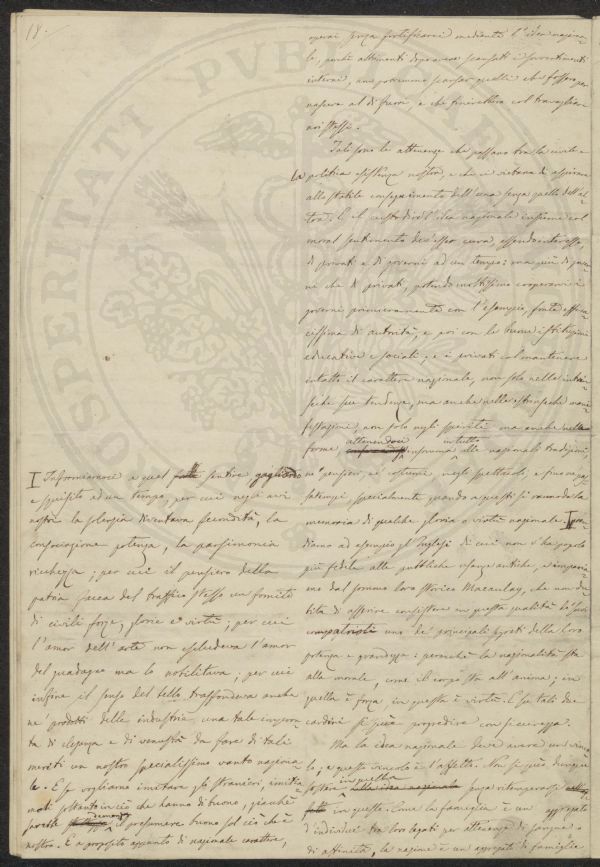 18.
operai senza fortificarci mediante l'idea naziona-
le, poichè altrimenti dopo avere scansati i sovvertimenti
interni, non potremmo scansar quelli che
al di fuori, e che finirebbero col travagliar
noi stessi.
Tali sono le attenenze che passano tra la civile e
la politica esistenza nostra, e che ci vietano di aspirare
allo stabile conseguimento dell'una senza quello dell'al-
tra. E il custodire l'idea nazionale insieme col
moral sentimento dev'esser cura, essendo interesse,
di privati e di governi ad un tempo: ma più di gover-
ni che di privati, potendo moltissimo cooperarvi i
governi primieramente con l'esempio, fonte effica-
cissima di autorità, e poi con le buone istituzioni
educative e sociali; e i privati col mantenere
intatto il carattere nazionale, non solo nelle intrin-
seche sue tendenze, ma anche nelle estrinseche mani-
festazioni, non solo negli spiriti ma anche nelle
forme, attenendoci insomma in tutto alle nazionali tradizioni,
ne' pensieri, ne' costumi, negli spettacoli, e fino ne' pas-
satempi, specialmente quando a questi si rannoda la
memoria di qualche gloria o virtù nazionale. Pren-
diamo ad esempio gl'Inglesi di cui non v'ha popolo
più fedele alle pubbliche usanze antiche, e impariamo
dal sommo loro storico Macaulay, che non du-
bita di asserire consistere in questa qualità de' suoi
compatriotti uno dei principali segreti della loro
potenza e grandezza: perocchè la nazionalità sta
alla morale, come il corpo sta all'anima; in
quella è forza, in questa è virtù. E su tali due
cardini si può progredire con sicurezza.
Ma la idea nazionale deve avere un vinco-
lo, e questo vincolo è l'affetto. Non si può dunque
in quella senza ritemperarsi
in questo. Come la famiglia è un aggregato
d'individui tra loro legati per attenenze di sangue o
di affinità, la nazione è un aggregato di famiglie
Informiamoci a quel sentire gagliardo
e squisito ad un tempo, per cui negli avi
nostri la solerzia diventava fecondità, la
consociazione potenza, la parsimonia
ricchezza; per cui il pensiero della
patria facea del traffico stesso un fomite
di civili forze, glorie e virtù; per cui
l'amor dell'arte non escludeva l'amor
del guadagno ma lo nobilitava; per cui
infine il senso del bello trasfondeva anche
ne' prodotti della industria una tale impron-
ta di eleganza e di venustà da fare di tali
meriti un nostro specialissimo vanto naziona-
le. E se vogliamo imitare gli stranieri, imitia-
moli soltanto in ciò che hanno di buono, giacchè
sarebbe demenza il presumere buono sol ciò ch'è
nostro. E a proposito appunto di nazionale carattere,